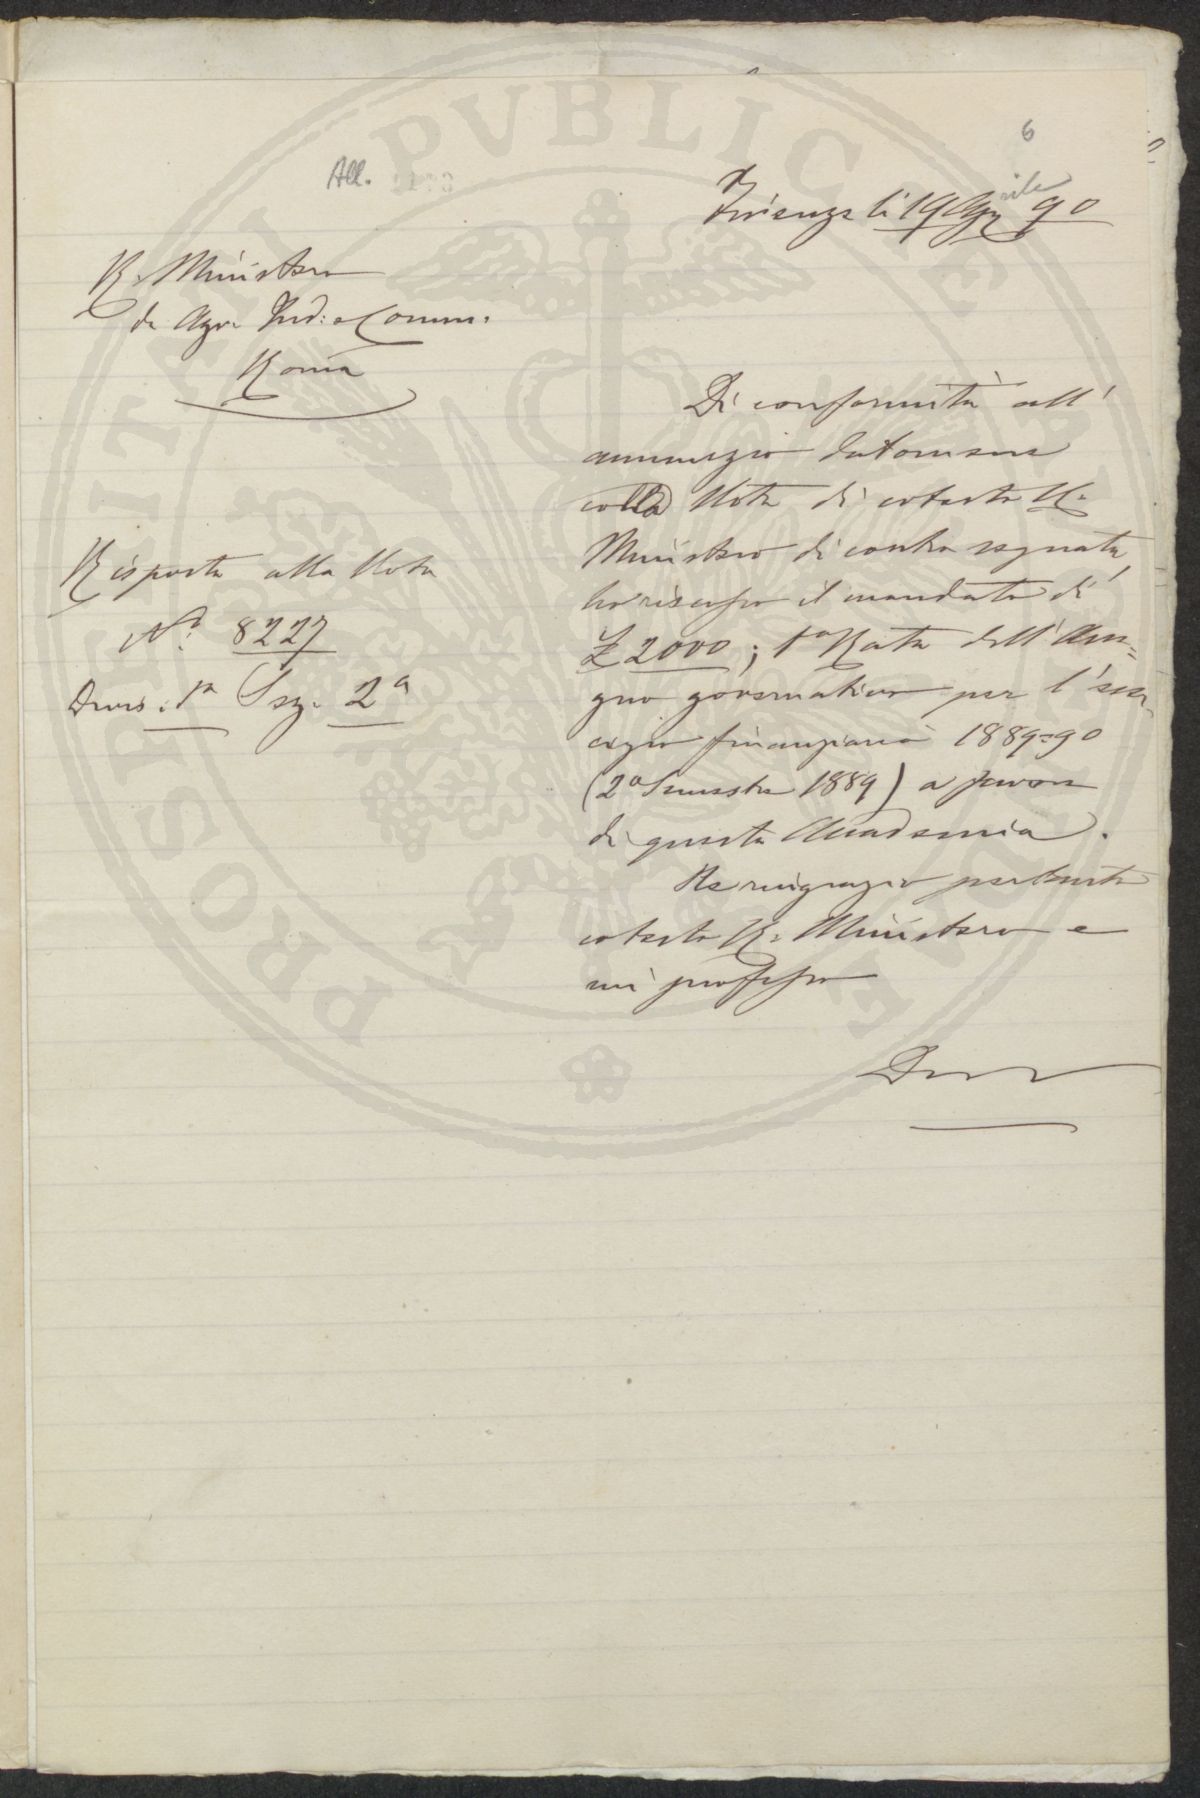 6
All.
Firenze li 19 Aprile 90
R. Ministero
di Agr. Ind: e Comm.
Roma
Di conformità all'
annunzio datomene
colla Nota di cotesto R.
Ministero di contro segnata,
ho riscosso il mandato di
£ 2000; 1a Rata dell'Asse=
gno governativo per l'eser
cizio finanziario 1889=90
(2o Semestre 1889) a favore
di questa Accademia.
Ne ringrazio pertanto
cotesto R. Ministero e
mi professo
Risposta alla Nota
No. 8227
Divis: 1a Sez. 2a
PROSPERITATI PVBLICAE AVGENDAE